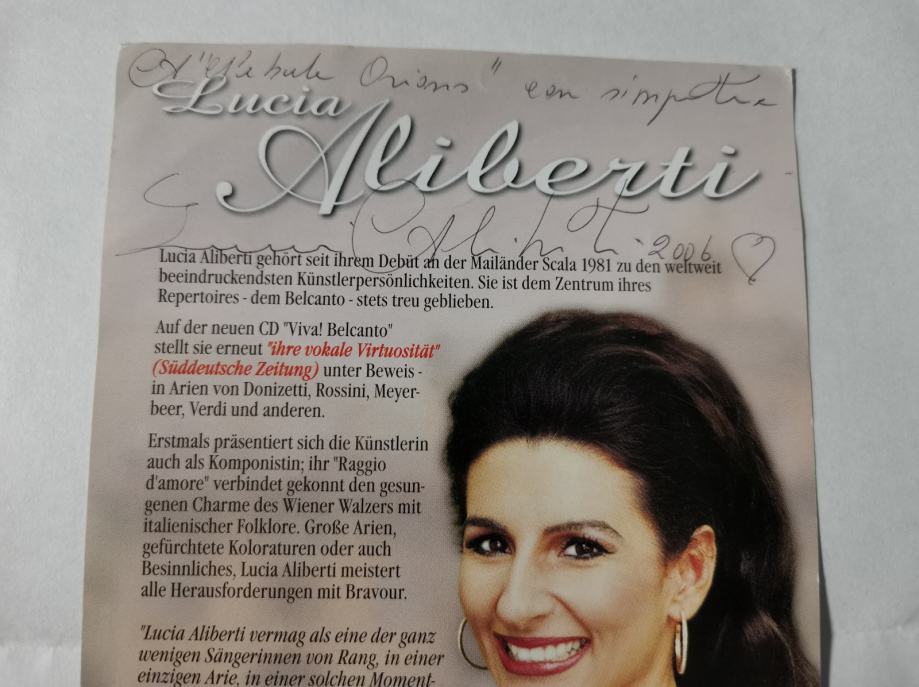 con simpatia
Lucia
Aliberti
Lucia Aliberti 2006
Lucia Aliberti gehört seit ihrem Debüt an der Mailänder Scala 1981 zu den weltweit
beeindruckendsten Künstlerpersönlichkeiten. Sie ist dem Zentrum ihres
Repertoires - dem Belcanto - stets treu geblieben.
Auf der neuen CD "Viva! Belcanto"
stellt sie erneut "ihre vokale Virtuosität"
(Süddeutsche Zeitung) unter Beweis -
in Arien von Donizetti, Rossini, Meyer-
beer, Verdi und anderen.
Erstmals präsentiert sich die Künstlerin
auch als Komponistin; ihr "Raggio
d'amore" verbindet gekonnt den gesun-
genen Charme des Wiener Walzers mit
italienischer Folklore. Große Arien,
gefürchtete Koloraturen oder auch
Besinnliches, Lucia Aliberti meistert
alle Herausforderungen mit Bravour.
"Lucia Aliberti vermag als eine der ganz
wenigen Sängerinnen von Rang, in einer
einzigen Arie, in einer solchen Moment-